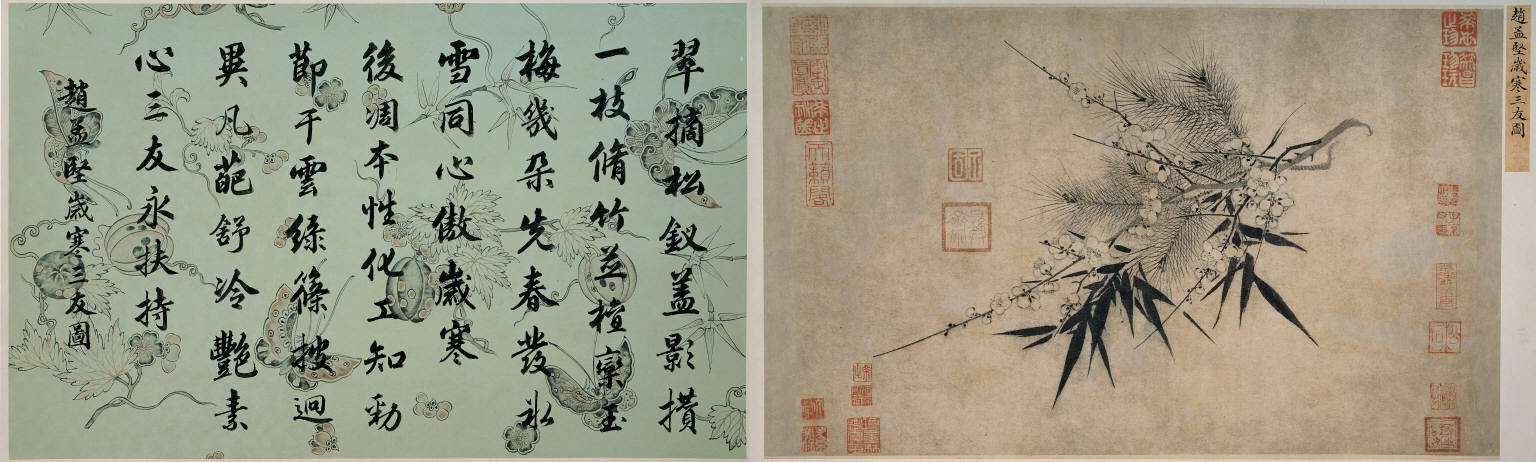 趙孟堅歲寒三友圖
天籟閣
翠摘松釵蓋影攢
一枝脩竹並檀欒玉
梅幾朵先春發冰
雪同心傲歲寒
後凋本性化工知勁
節干雲綠篠披迥
異凡葩舒冷豔素
心三友永扶持
趙孟堅歲寒三友圖